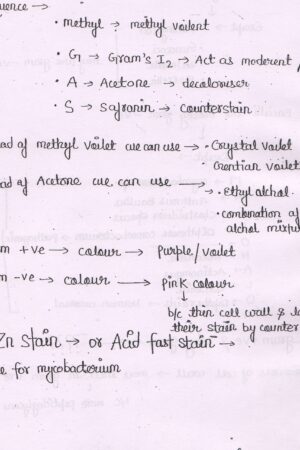 uence →
· methyl → methyl voilent
· G → Gram's I2 → Act as moderent
· A → Acetone → decoloriser
· S → Safronin → counterstain
ad of methyl voilet we can use → · Crystal vailet
· Gentian voilet
ad of Acetone we can use → · Ethyl alchol.
· combination of
alchol mixtu
m +ve → colour → Purple/vailet
m -ve → colour → pink colour
↓
b/c thin cell wall &
their stain by counter
Zn stain → or Acid fast stain →
e for mycobacterium